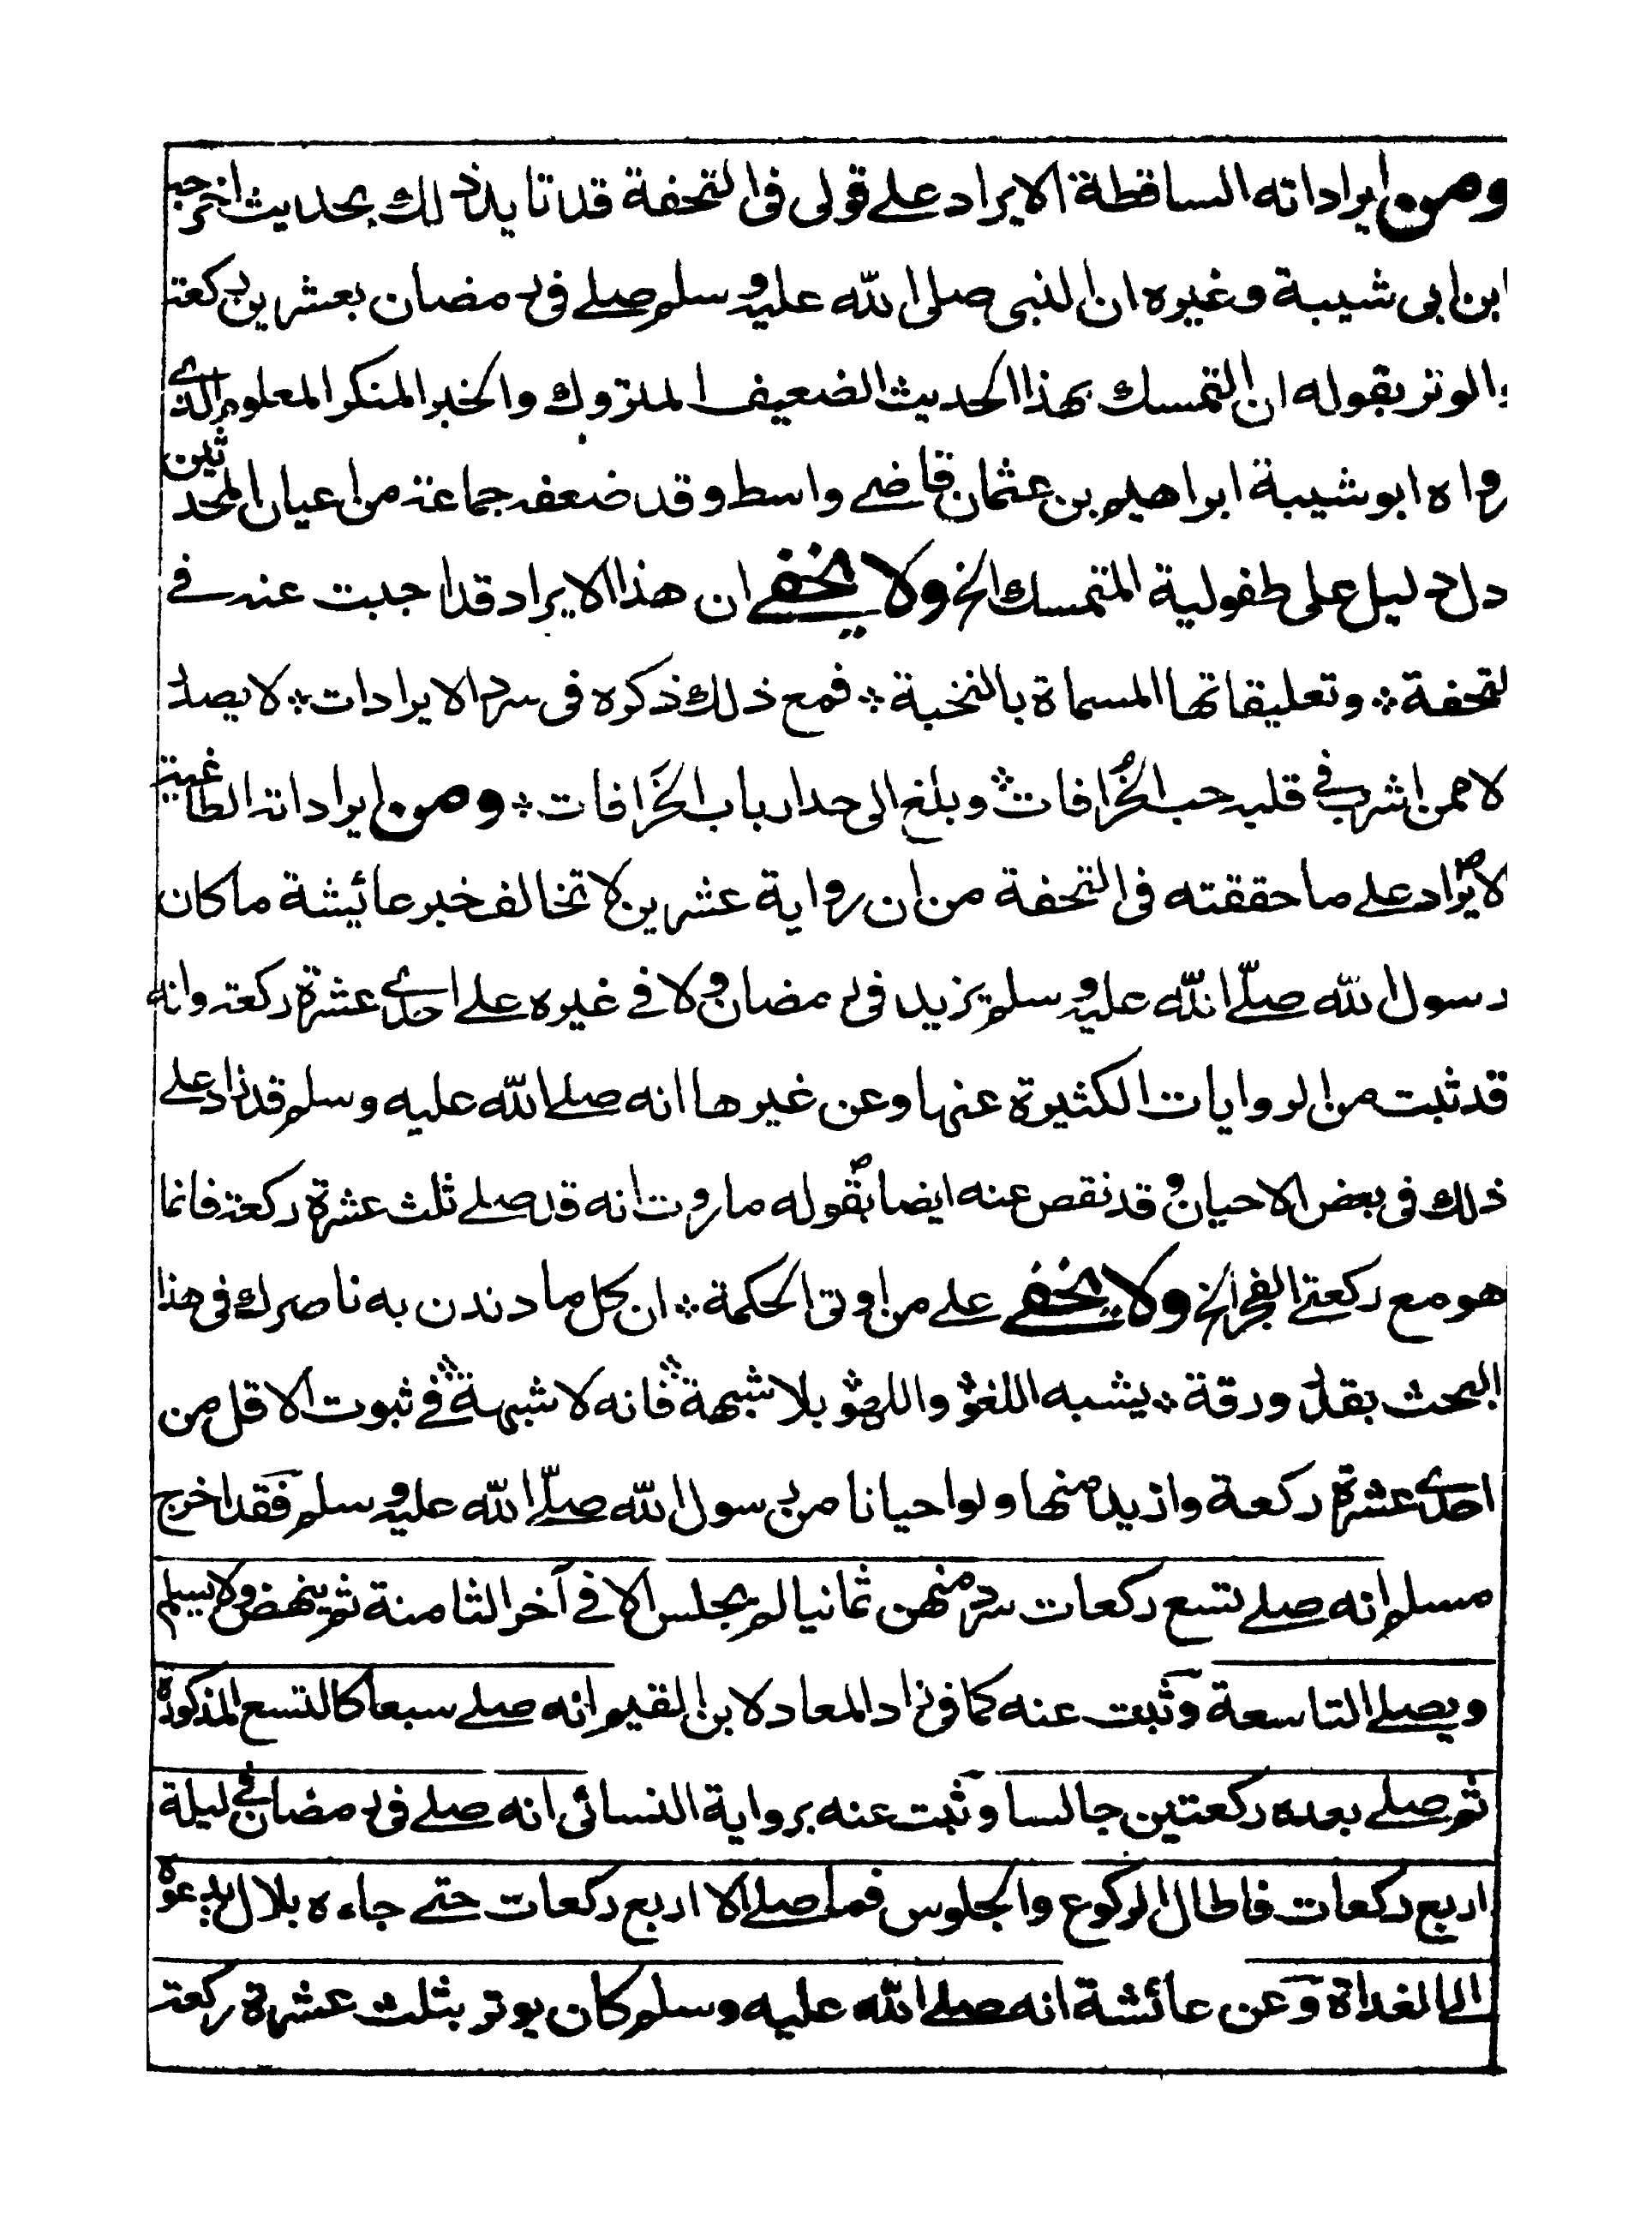 ومن ايراداته الساقطة الايراد على قولى فى التحفة قد تايد ذلك بحديث اخرجه
ابن ابى شيبة وغيره ان النبى صلى الله عليه وسلم صلى فى رمضان بعشرين ركعة
والوتر بقوله ان التمسك بهذا الحديث الضعيف المتروك والخبر المنكر المعلوم الذى
رواه ابو شيبة ابراهيم بن عثمان قاضى واسط وقد ضعفه جماعة من اعيان المحدثين
دل دليل على طفولية المتمسك الخ ولا يخفى ان هذا الايراد قد اجبت عنه فى
لتحفة ؞ وتعليقاتها المسماة بالنخبة ؞ فمع ذلك ذكره فى سرد الايرادات ؞ لا يصدر
لا ممن اشرب فى قلبه حب الخُرافات ؞ وبلغ الى حد ارباب الخَرافات ؞ ومن ايراداته الطاغية
لايراد على ما حققته فى التحفة من ان رواية عشرين لا تخالف خبر عائيشة ما كان
رسول الله صلى الله عليه وسلم يزيد فى رمضان ولا فى غيره على احدى عشرة ركعة وانه
قد ثبت من الروايات الكثيرة عنها وعن غيرها انه صلى الله عليه وسلم قد زاد على
ذلك فى بعض الاحيان وقد نقص عنه ايضا بقوله ما روت انه قد صلى ثلث عشرة ركعة فانما
هو مع ركعتى الفجر الخ ولا يخفى على من اوتى الحكمة ؞ ان كل ما دندن به ناصرك فى هذا
البحث بقدر ورقة ؞ يشبه اللغو واللهو بلا شبهة ؞ فانه لا شبهة ؞ فى ثبوت الاقل من
احدى عشرة ركعة وازيد منها ولو احيانا من رسول الله صلى الله عليه وسلم فقد اخرج
مسلم انه صلى تسع ركعات سرد منهن ثمانيا لم يجلس الا فى آخر الثامنة ثم ينهض ولا يسلم
ويصلى التاسعة وثبت عنه كما فى زاد المعاد لابن القيم انه صلى سبعا كالتسع المذكورة
ثم صلى بعده ركعتين جالسا وثبت عنه برواية النسائى انه صلى فى رمضان فى ليلة
اربع ركعات فاطال الركوع والجلوس فما صلى الا اربع ركعات حتى جاءه بلال يدعوه
الى الغداة وعن عائشة انه صلى الله عليه وسلم كان يوتر بثلث عشرة ركعة